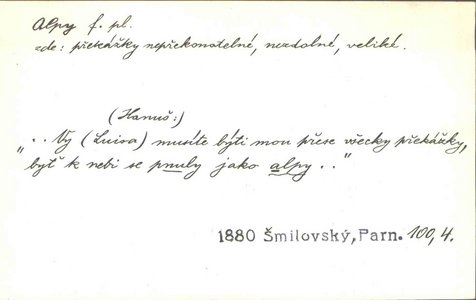 Alpy f. pl.
zde: překážky nepřekonatelné, nezdolné, veliké.
(Hanuš:)
"..Vy (Luisa) musíte býti mou přese všecky překážky,
byť k nebi se pnuly jako alpy.."
1880 Šmilovský, Parn. 100,4.